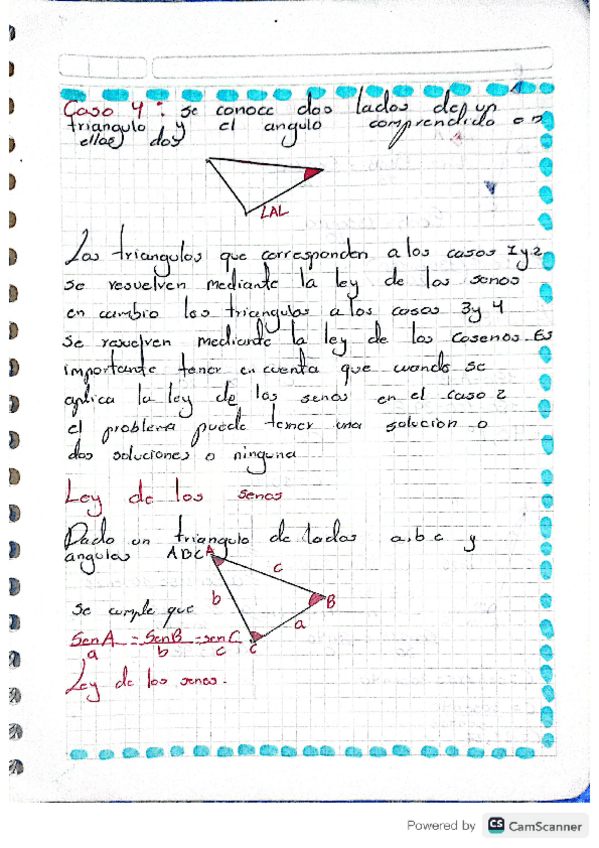 Caso 4: se conoce dos lados de un
triangulo y el angulo comprendido en
ellos dos
LAL
Los triangulos que corresponden a los casos 1 y 2
se resuelven mediante la ley de los senos
en cambio los triangulos a los casos 3 y 4
se resuelven mediante la ley de los cosenos. Es
importante tener en cuenta que cuando se
aplica la ley de los senos en el caso 2
el problema puede tener una solucion o
dos soluciones o ninguna
Ley de los senos
Dado un triangulo de lados a, b c y
angulos ABC
A
c
b
B
a
C
Se cumple que
SenA = SenB = senC
a b c
Ley de los senos.
Powered by CS CamScanner